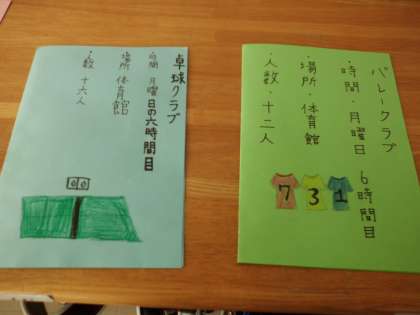 バレークラブ
・時間・月曜日 6時間目
・場所・体育館
・人数・十二人
7 3 1
卓球クラブ
・時間 月曜日の六時間目
・場所 体育館
・人数 十六人
00